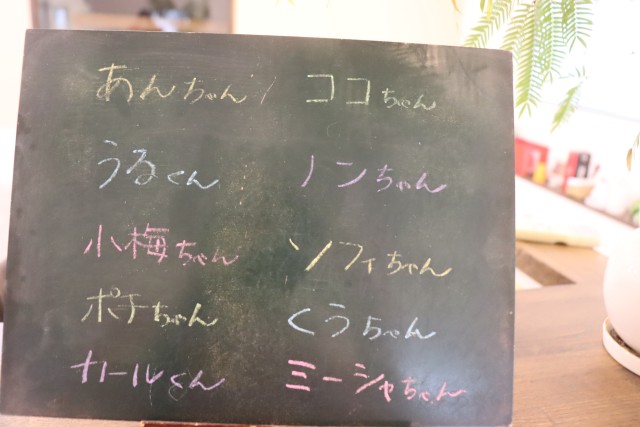 あんちゃん ココちゃん
うるくん ノンちゃん
小梅ちゃん ソフィちゃん
ポチちゃん くうちゃん
カールくん ミーシャちゃん